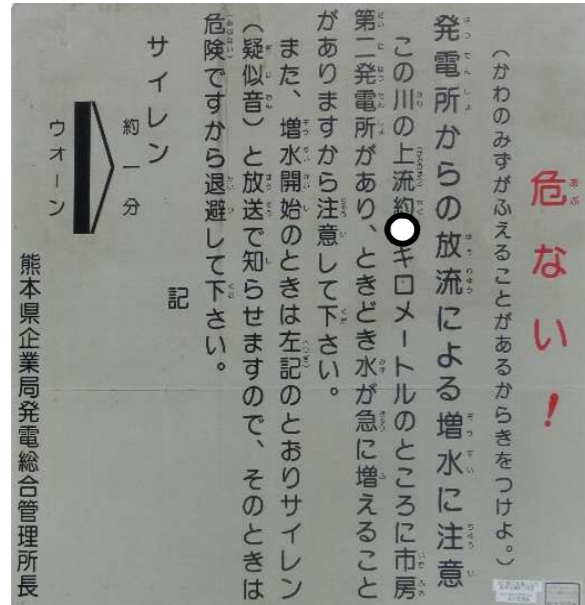 危ない!
(かわのみずがふえることがあるからきをつけよ。)
発電所からの放流による増水に注意
この川の上流約 キロメートルのところに市房
第二発電所があり、ときどき水が急に増えること
がありますから注意して下さい。
また、増水開始のときは左記のとおりサイレン
(疑似音)と放送で知らせますので、そのときは
危険ですから退避して下さい。
記
サイレン
約一分
ウオーン
熊本県企業局発電総合管理所長